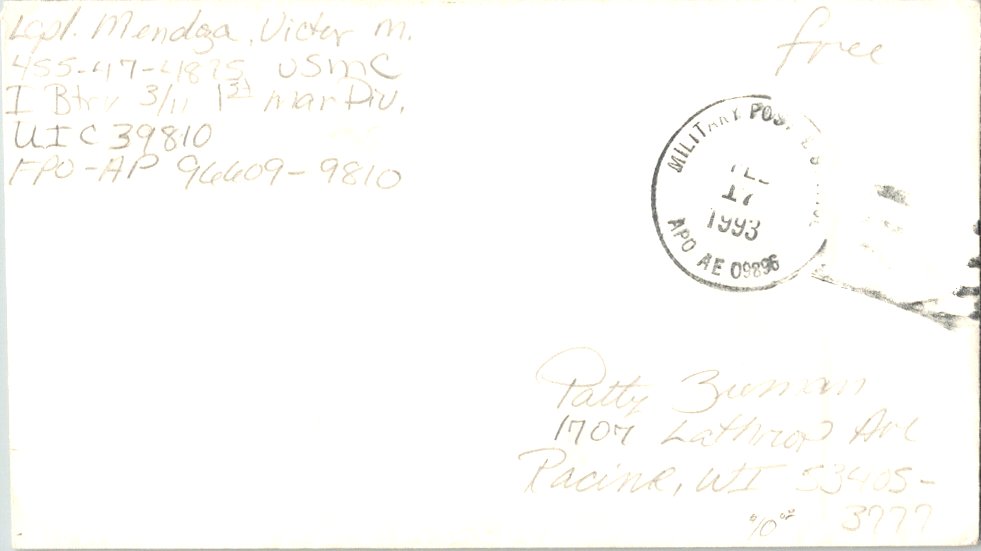 Lcpl. Mendoza, Victor M.
USMC
I Btry 3/11 1st Mar Div.
UIC 39810
FPO-AP 96609-9810
free
MILITARY POSTAL
17
1993
APO AE 09896
Patty
1707 Lathrop Ave
Racine, WI 53405-
3777